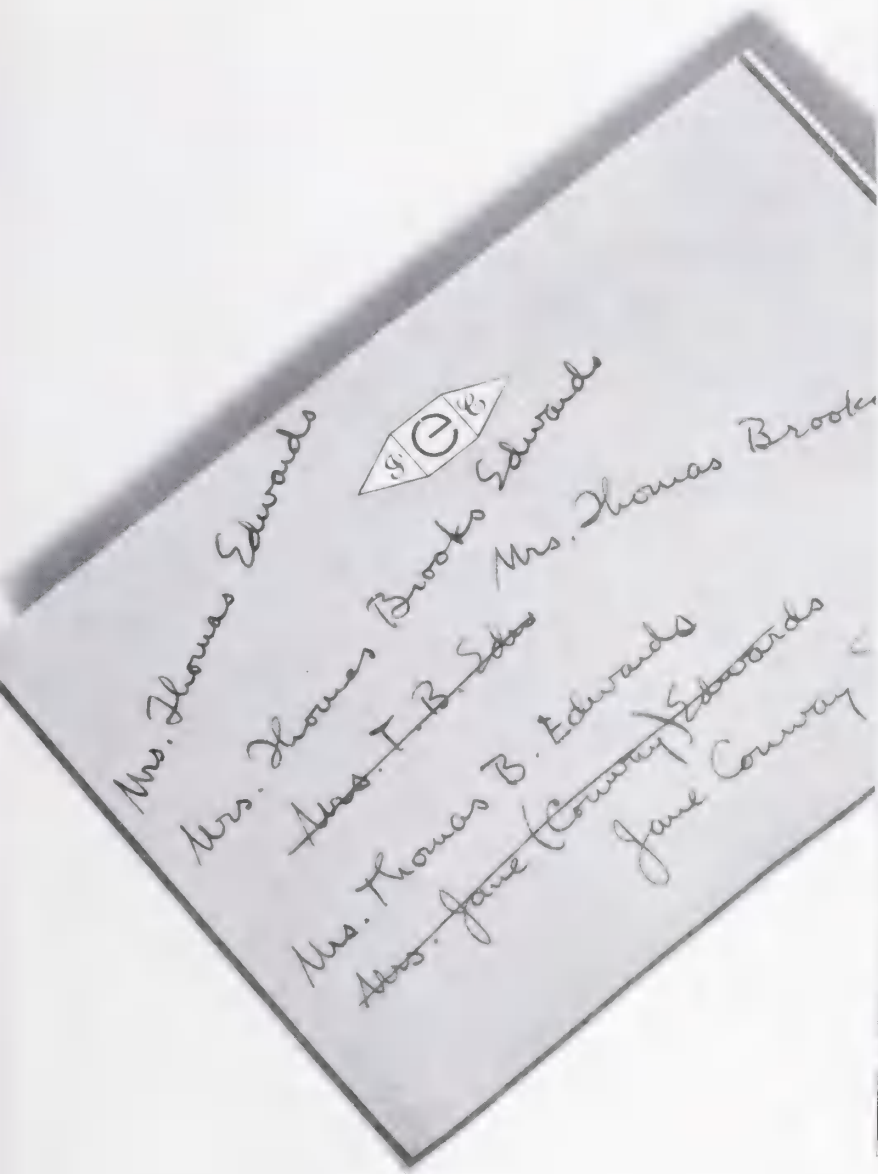 J e C
Mrs. Thomas Edwards
Mrs. Thomas Brooks Edwards
Mrs. Thomas Brooks
Mrs. T. B. Edw
Mrs. Thomas B. Edwards
Mrs. Jane (Conway) Edwards
Jane Conway